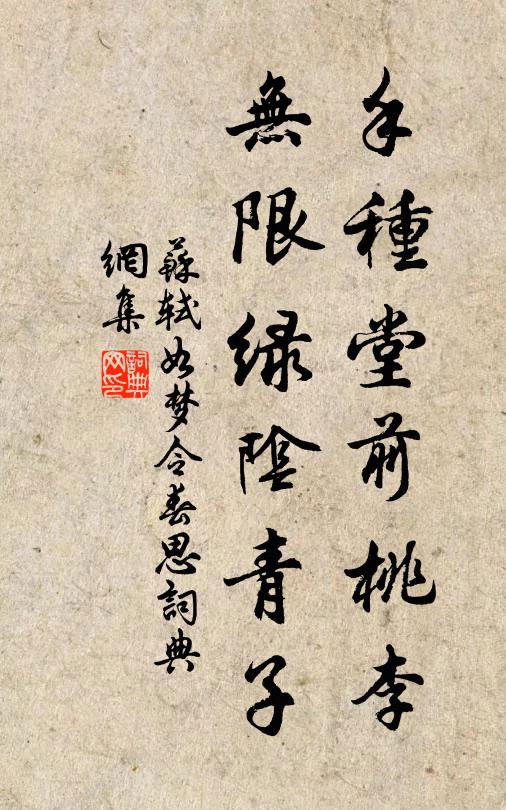 手種堂前桃李
無限绿陰青子
蘇軾如梦令春思詞典
網集
詞典
网印